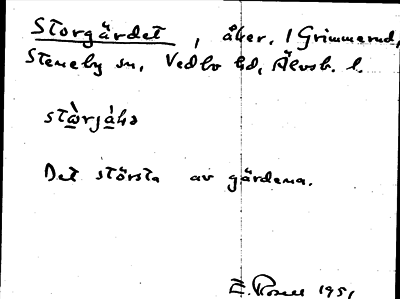 Storgärdet, åker. / Grimmerud,
Steneby sn, Vedbo hd, Älvsb. l.
Det största av gärdena.
E. Rosell 1951